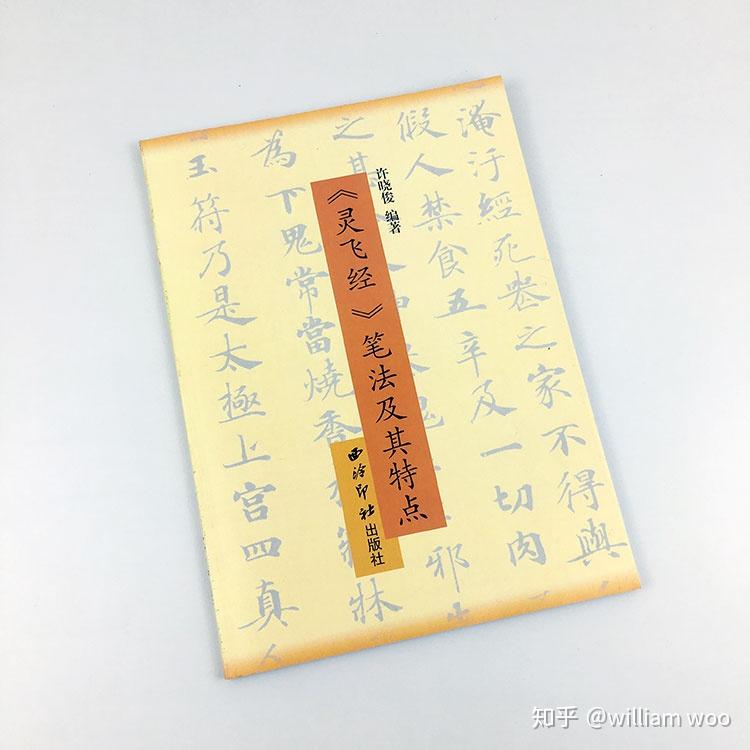 许晓俊 编著
《灵飞经》笔法及其特点
西泠印社出版社
淹汙經死喪之家不得與
假人禁食五辛及一切肉
之其
邪
為下鬼常當燒香
牀
玉符乃是太極上宮四真人
知乎 @william woo